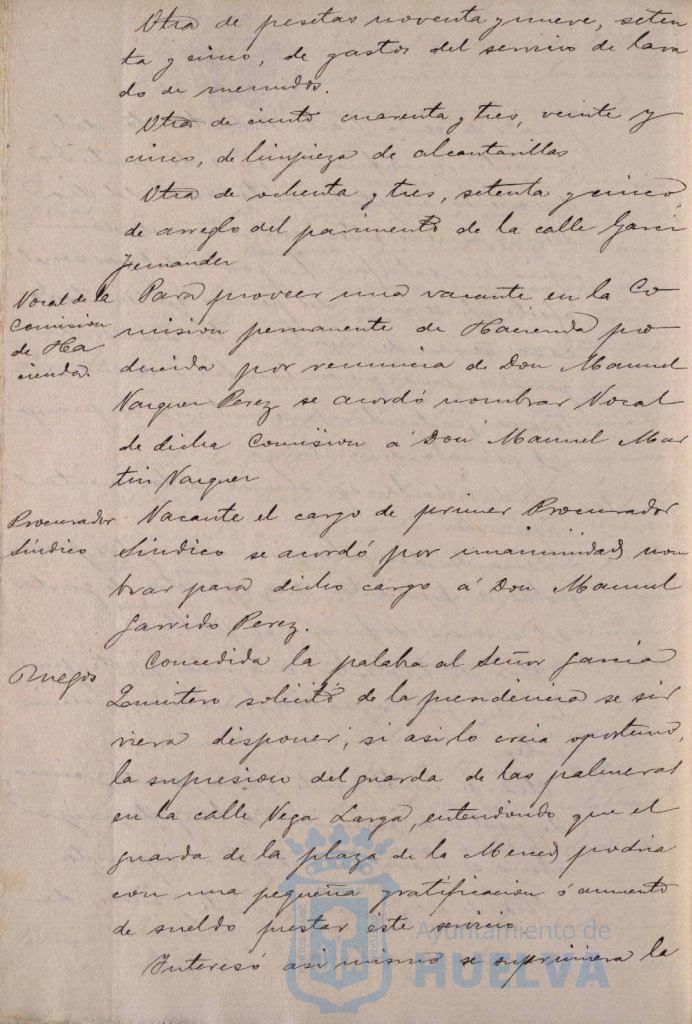 Otra de pesetas noventa y nueve, seten
ta y cinco, de gastos del servicio de lava
do de menudos.
Otra de ciento cuarenta y tres, veinte y
cinco, de limpieza de alcantarillas
Otra de ochenta y tres, setenta y cinco,
de arreglo del pavimento de la calle Garci
Fernander
Vocal de la
Comision
de Ha
cienda.
Para proveer una vacante en la Co
mision permanente de Hacienda pro
ducida por renuncia de Don Manuel
Varquer Perez se acordó nombrar Vocal
de dicha Comision á Don Manuel Mar
tin Varquer
Procurador
Síndico
Vacante el cargo de primer Procurador
Síndico se acordó por unanimidad nom
brar para dicho cargo á Don Manuel
Garrido Perez.
Ruegos
Concedida la palabra al Señor García
Quintero solicitó de la presidencia se sir
viera disponer, si asi lo creia oportuno,
la supresion del guarda de las palmeras
en la calle Vega Larga, entendiendo que el
guarda de la plaza de la Merced podria
con una pequeña gratificacion ó aumento
de sueldo prestar este servicio
Interesó asi mismo se suprimiera la
Ayuntamiento de
HUELVA